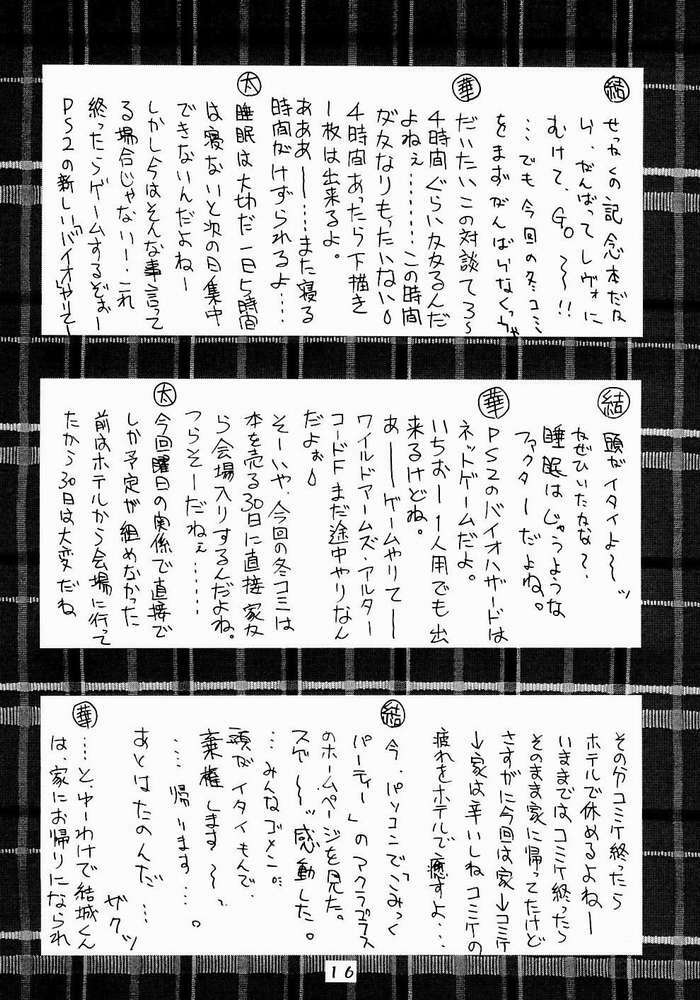 結
せっかくの記念本だな
ら、がんばってレヴォに
むけて、GO～～!!
…でも今回の冬コミ
をまずがんばらなくっちゃ
華
だいたいこの対談てさ〜
4時間ぐらいかかるんだ
よねぇ……この時間
がかなりもったいない
4時間あったら下描き
1枚は出来るよ。
あああー……また寝る
時間がけずられるよ……
太
睡眠は大切だ一日5時間
は寝ないと次の日集中
できないんだよねー
しかし今はそんな事言って
る場合じゃないー！これ
終ったらゲームするぞぉー
PS2の新しい「バイオ」やりてー
結
頭がイタイよ〜ッ
なぜひいたかな？、
睡眠はじゅうような
ファクターだよね。
華
PS2のバイオハザードは
ネットゲームだよ。
いちおー1人用でも出
来るけどね。
あーーゲームやりてーー
ワイルドアームズ・アルター
コードFまだ途中やりなん
だよぉ
そーいや、今回の冬コミは
本を売る30日に直接家か
ら会場入りするんだよね。
つらそーだねぇ……
太
今回曜日の関係で直接で
しか予定が組めなかった
前はホテルから会場に行って
たから30日は大変だね
その分コミケ終ったら
ホテルで休めるよねー
いままでは、コミケ終ったら
そのまま家に帰ってたけど
さすがに今回は家→コミケ
→家は辛いしね コミケの
疲れをホテルで癒すよ…
結
今、パソコンで「こみっく
パーティー」のアクラプラス
のホームページを見た。
スゲ〜〜ッ感動した。
…みんなゴメン。
頭がイタイもんで
棄権します〜っ
……帰ります…。
あとはたのんだ…
ザクッ
華
…と、ゆーわけで結城くん
は、家にお帰りになられ
16